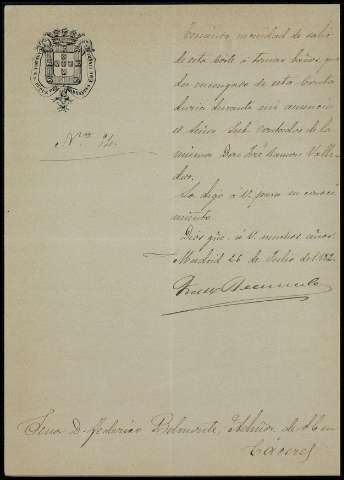 Teniendo necesidad de salir
de esta Corte á tomar baños, que-
da encargado de esta Conta-
duría durante mi ausencia
el Señor Sub-contador de la
misma Don José Ramon Valle-
dor.
Lo digo á V. para su conoci-
miento.
Dios gũe. á V. muchos años.
Madrid 26 de Julio de 1882.
Nro
Señor D. Federico Belmonte, Admor. de
Cáceres